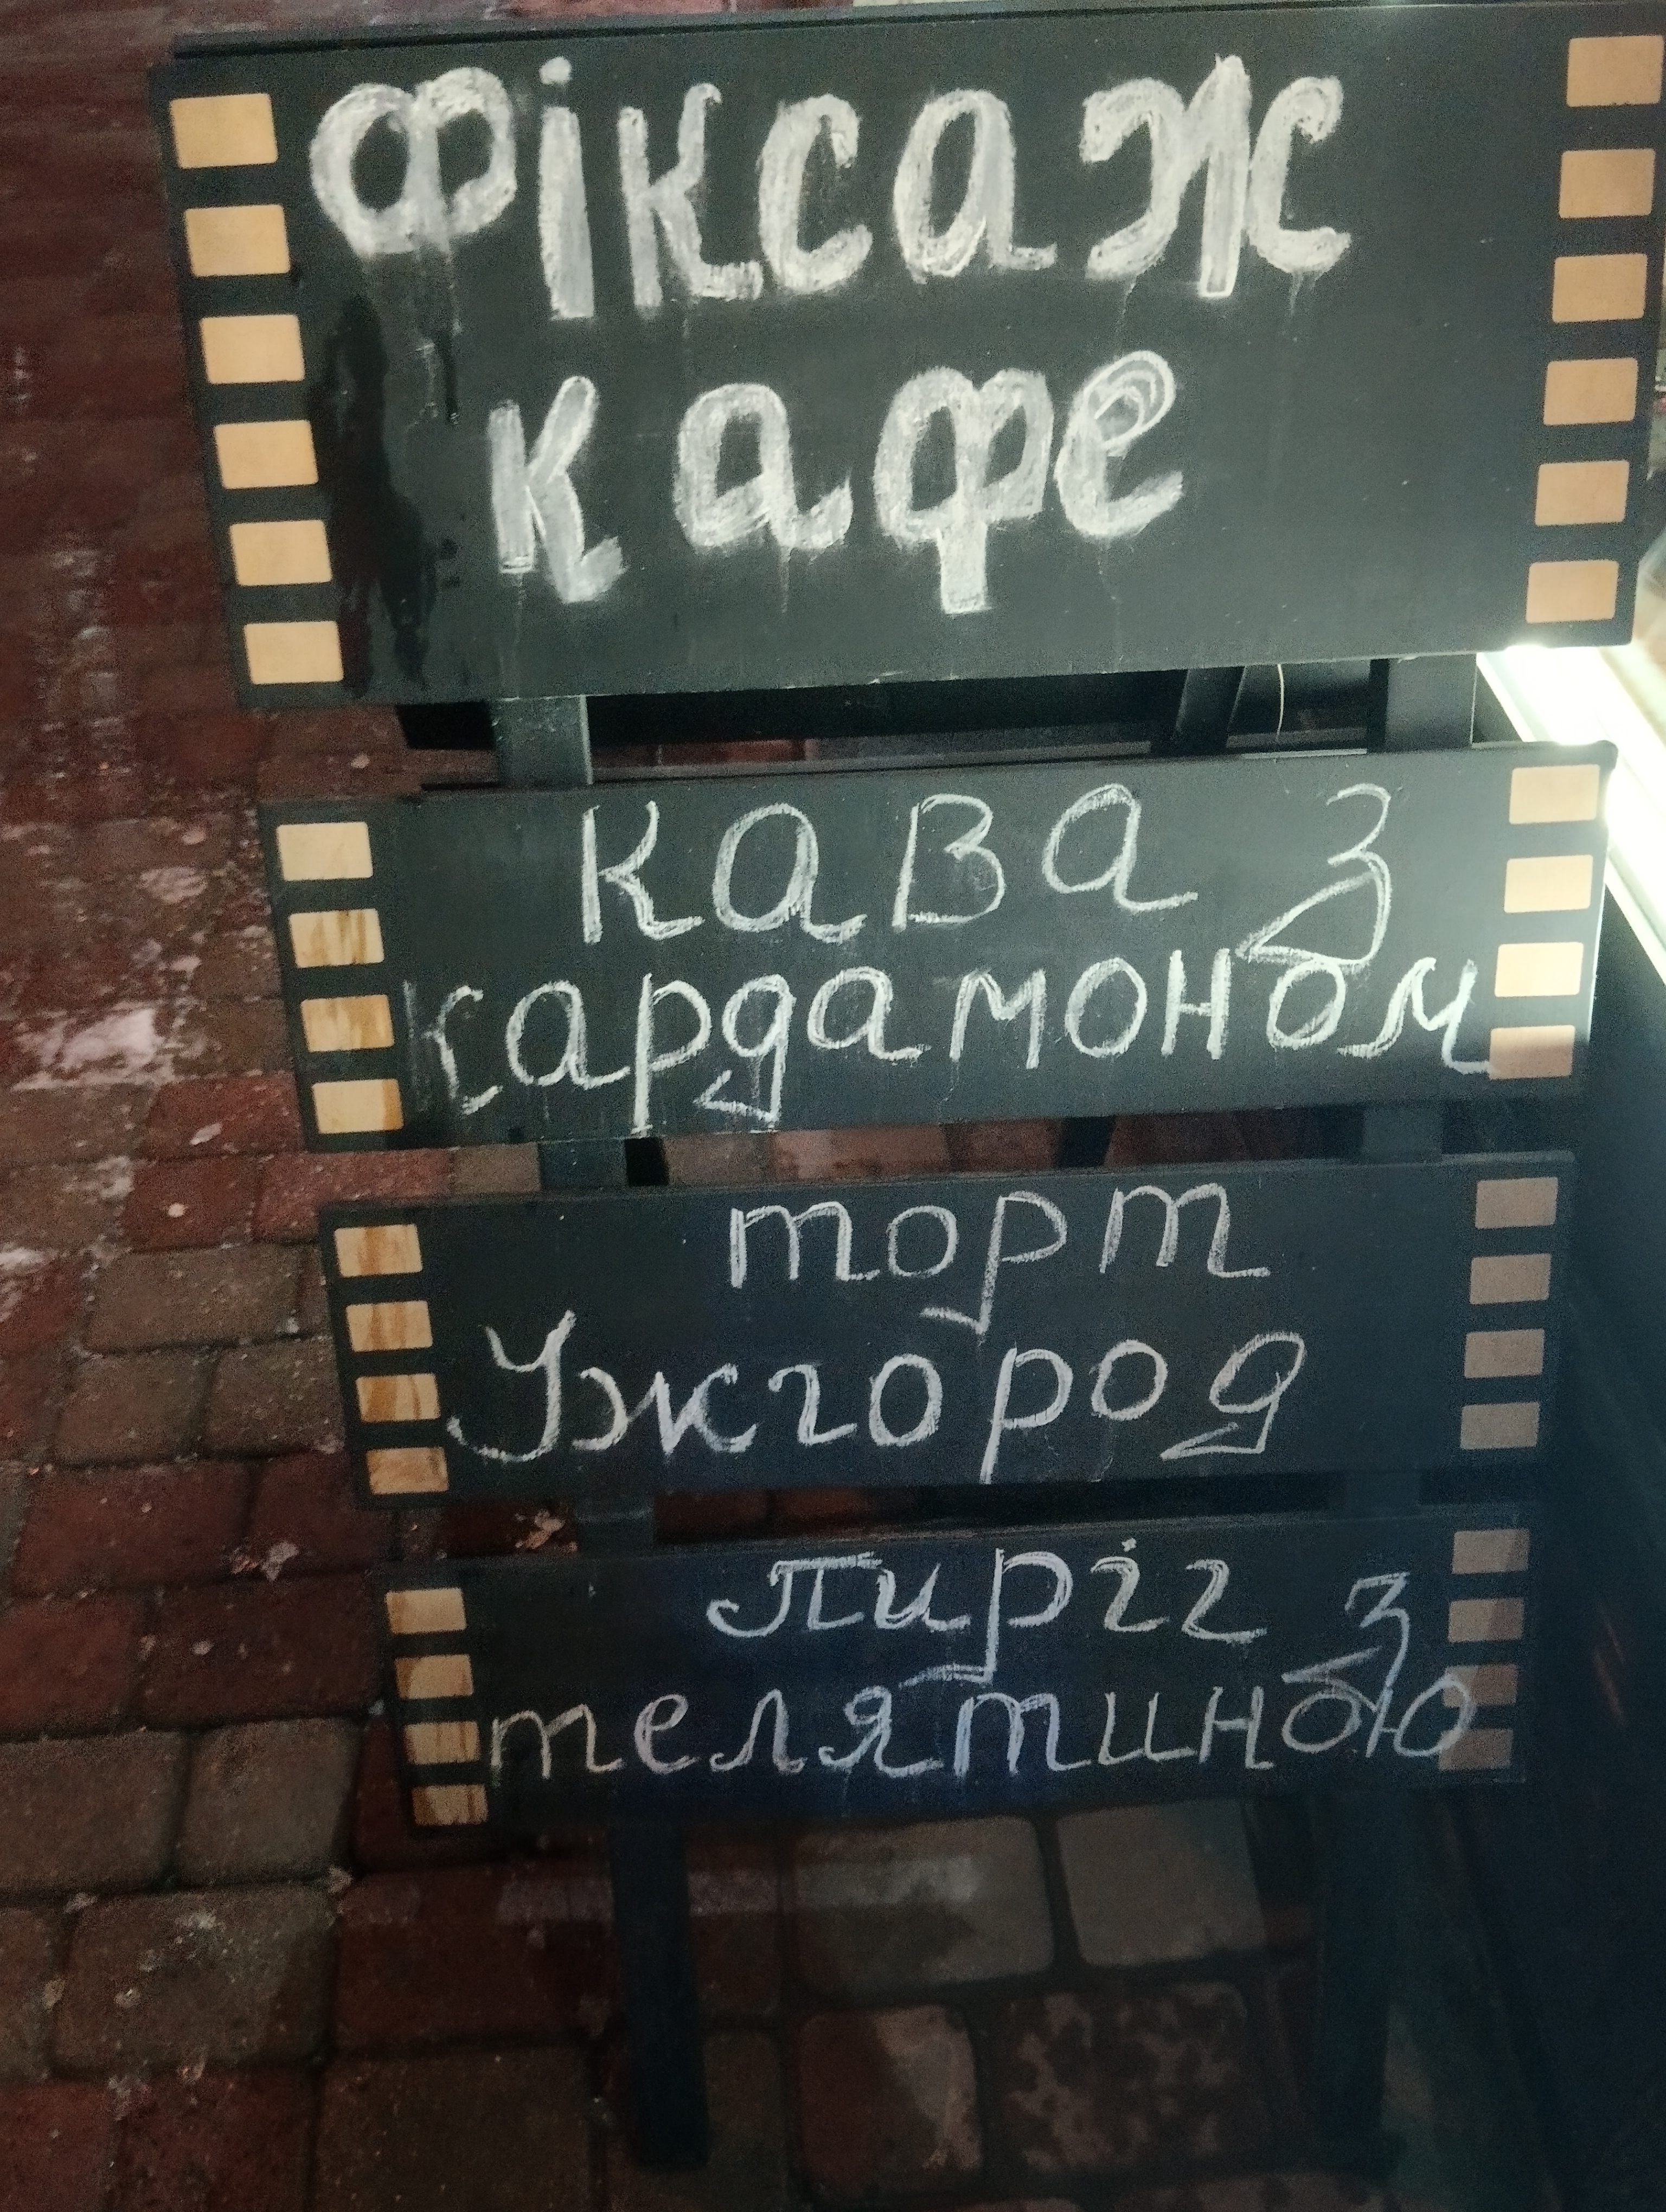 Фіксаж
кафе
кава з
кардамоном
торт
Ужгород
пиріг з
телятиною